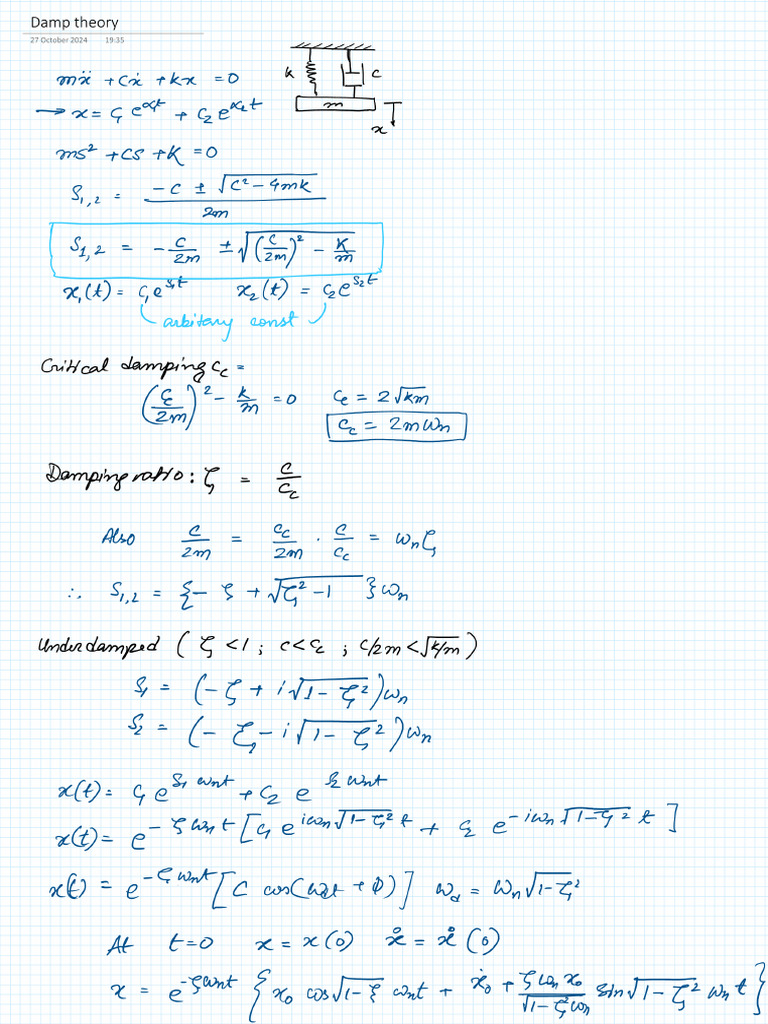 Damp theory
27 October 2024 19:35
mẍ + cẋ + kx = 0
k c
m
x
→ x = c₁ e^{α₁t} + c₂ e^{α₂t}
ms² + cs + k = 0
S₁,₂ = (-c ± √(c² - 4mk)) / 2m
S₁,₂ = -c/2m ± √((c/2m)² - k/m)
x₁(t) = c₁e^{s₁t} x₂(t) = c₂e^{s₂t}
arbitary const
Critical damping c_c =
(c_c/2m)² - k/m = 0 c_c = 2√km
c_c = 2mωn
Damping ratio: ζ = c/c_c
Also c/2m = c_c/2m · c/c_c = ωnζ
∴ S₁,₂ = {- ζ + √(ζ² - 1) }ωn
Underdamped (ζ < 1 ; c < c_c ; c/2m < √(k/m))
S₁ = (-ζ + i√(1 - ζ²))ωn
S₂ = (-ζ - i√(1 - ζ²))ωn
x(t) = c₁ e^{S₁ ωnt} + c₂ e^{S₂ ωnt}
x(t) = e^{-ζωnt} [c₁ e^{iωn√(1-ζ²) t} + c₂ e^{-iωn√(1-ζ²) t}]
x(t) = e^{-ζωnt} [C cos(ωdt + φ)] ωd = ωn√(1-ζ²)
At t=0 x = x(0) ẋ = ẋ(0)
x = e^{-ζωnt} {x₀ cos√(1-ζ) ωnt + (ẋ₀ + ζωn x₀)/(√(1-ζ²) ωn) sin√(1-ζ²) ωn t}